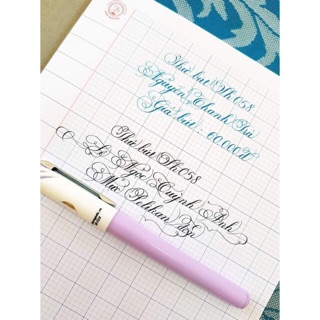 Thử bút Sh 058
Nguyễn Thanh Tú
Giá bút : 60.000đ
Thử bút Sh 058
Lê Ngọc Quỳnh Anh
Mực Pelikan